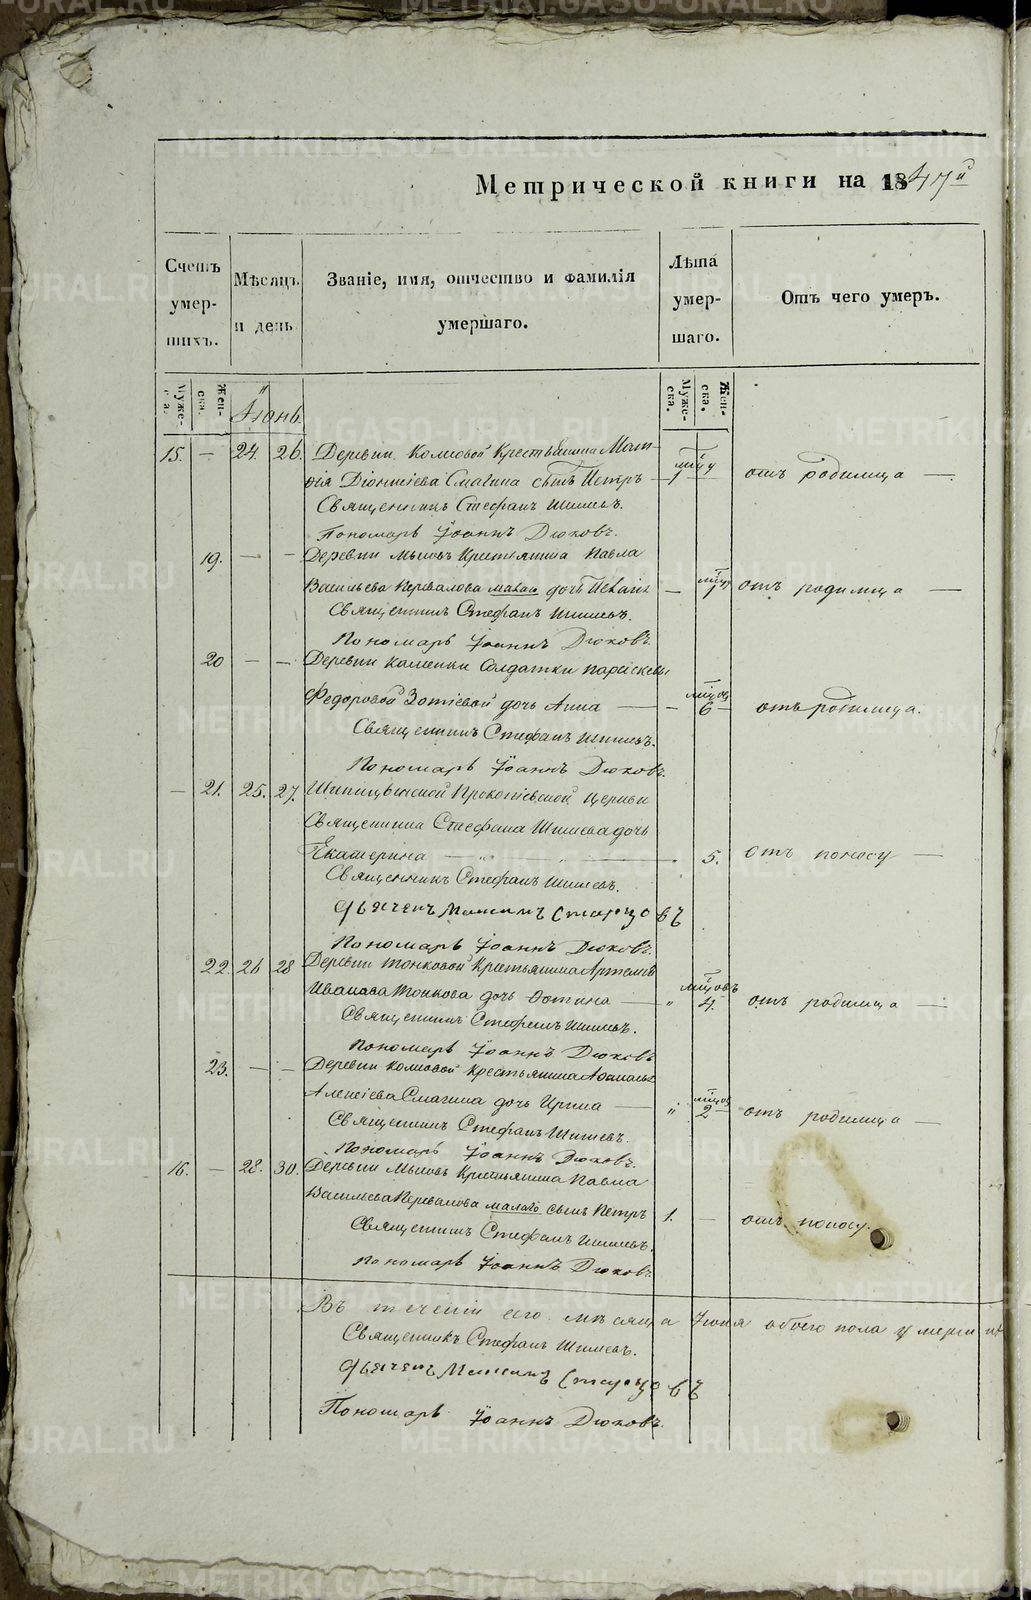 Метрической книги на 1847й
Счетъ умер-шихъ.
Мѣсяцъ и день
Званіе, имя, отчество и фамилія умершаго.
Лѣта умер-шаго.
Отъ чего умеръ.
Муже-ска.
Жен-ска.
Іюнь.
Муже-ска.
Жен-ска.
15. — 24. 26. Деревни Комковой Крестьянина Мат-
ѳія Діонисіева Смагина сынъ Петръ — 1 — отъ родимца —
Священникъ Стефанъ Шишевъ.
Пономарь Іоаннъ Дюковъ.
19. — — Деревни Мысовъ Крестьянина Павла
Васильева Перевалова малаго дочь — 1 отъ родимца —
Священникъ Стефанъ Шишевъ.
Пономарь Іоаннъ Дюковъ.
20 — — Деревни Каменки Солдатки Параскевы
Федоровой Зотіевой дочь Анна — — 6 — отъ родимца.
Священникъ Стефанъ Шишевъ.
Пономарь Іоаннъ Дюковъ.
— 21. 25. 27. Шипицынской Прокопіевской Церкви
Священника Стефана Шишева дочь
Екатерина — 5. отъ поносу —
Священникъ Стефанъ Шишевъ.
Дьячекъ Максимъ Старцовъ
Пономарь Іоаннъ Дюковъ.
22 26 28 Деревни Тонковой Крестьянина Артемія
Иванова Тонкова дочь Фотина — " 4. отъ родимца —
Священникъ Стефанъ Шишевъ.
Пономарь Іоаннъ Дюковъ
23. — — Деревни Комковой Крестьянина Аѳанасія
Алексіева Смагина дочь Ирина — " 2 отъ родимца —
Священникъ Стефанъ Шишевъ.
Пономарь Іоаннъ Дюковъ.
16. — 28. 30. Деревни Мысовъ Крестьянина Павла
Васильева Перевалова малаго сынъ Петръ 1. — отъ поносу.
Священникъ Стефанъ Шишевъ.
Пономарь Іоаннъ Дюковъ.
Въ теченіи сего мѣсяца Іюня обоего пола умерш
Священникъ Стефанъ Шишевъ.
Дьячекъ Максимъ Старцовъ
Пономарь Іоаннъ Дюковъ.
METRIKI.GASU-URAL.RU